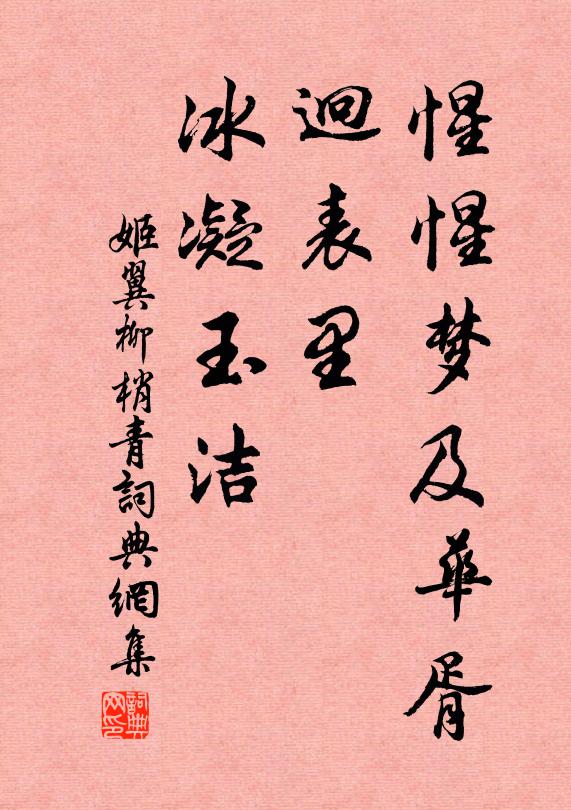 惺惺梦及华胥
迥表里
冰凝玉洁
姬翼柳梢青詞典網集
詞典网印